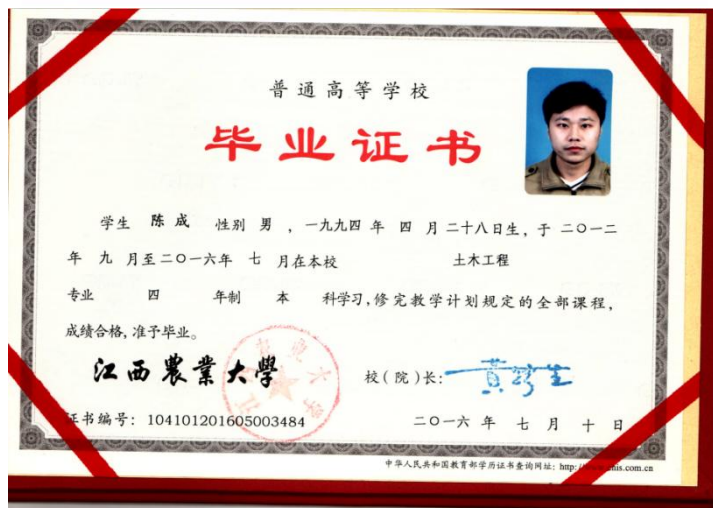 普通高等学校
毕业证书
学生 陈成 性别 男 ，一九九四 年 四 月 二十八日生，于 二〇一二
年 九 月至二〇一六年 七 月在本校 土木工程
专业 四 年制 本 科学习，修完教学计划规定的全部课程，
成绩合格，准予毕业。
江西農業大學 校（院）长：
证书编号：104101201605003484 二〇一六 年 七 月 十 日
中华人民共和国教育部学历证书查询网址：http: